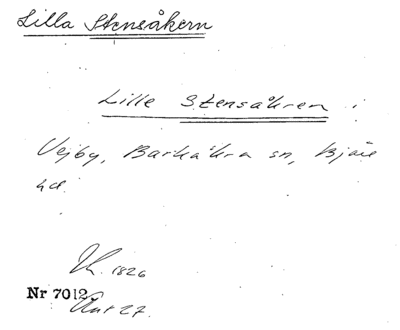 Lilla Stensåkern
Lille Stensåkren i
Vejby, Barkåkra sn, Bjäre
hd.
1826
Nr 7012
27.